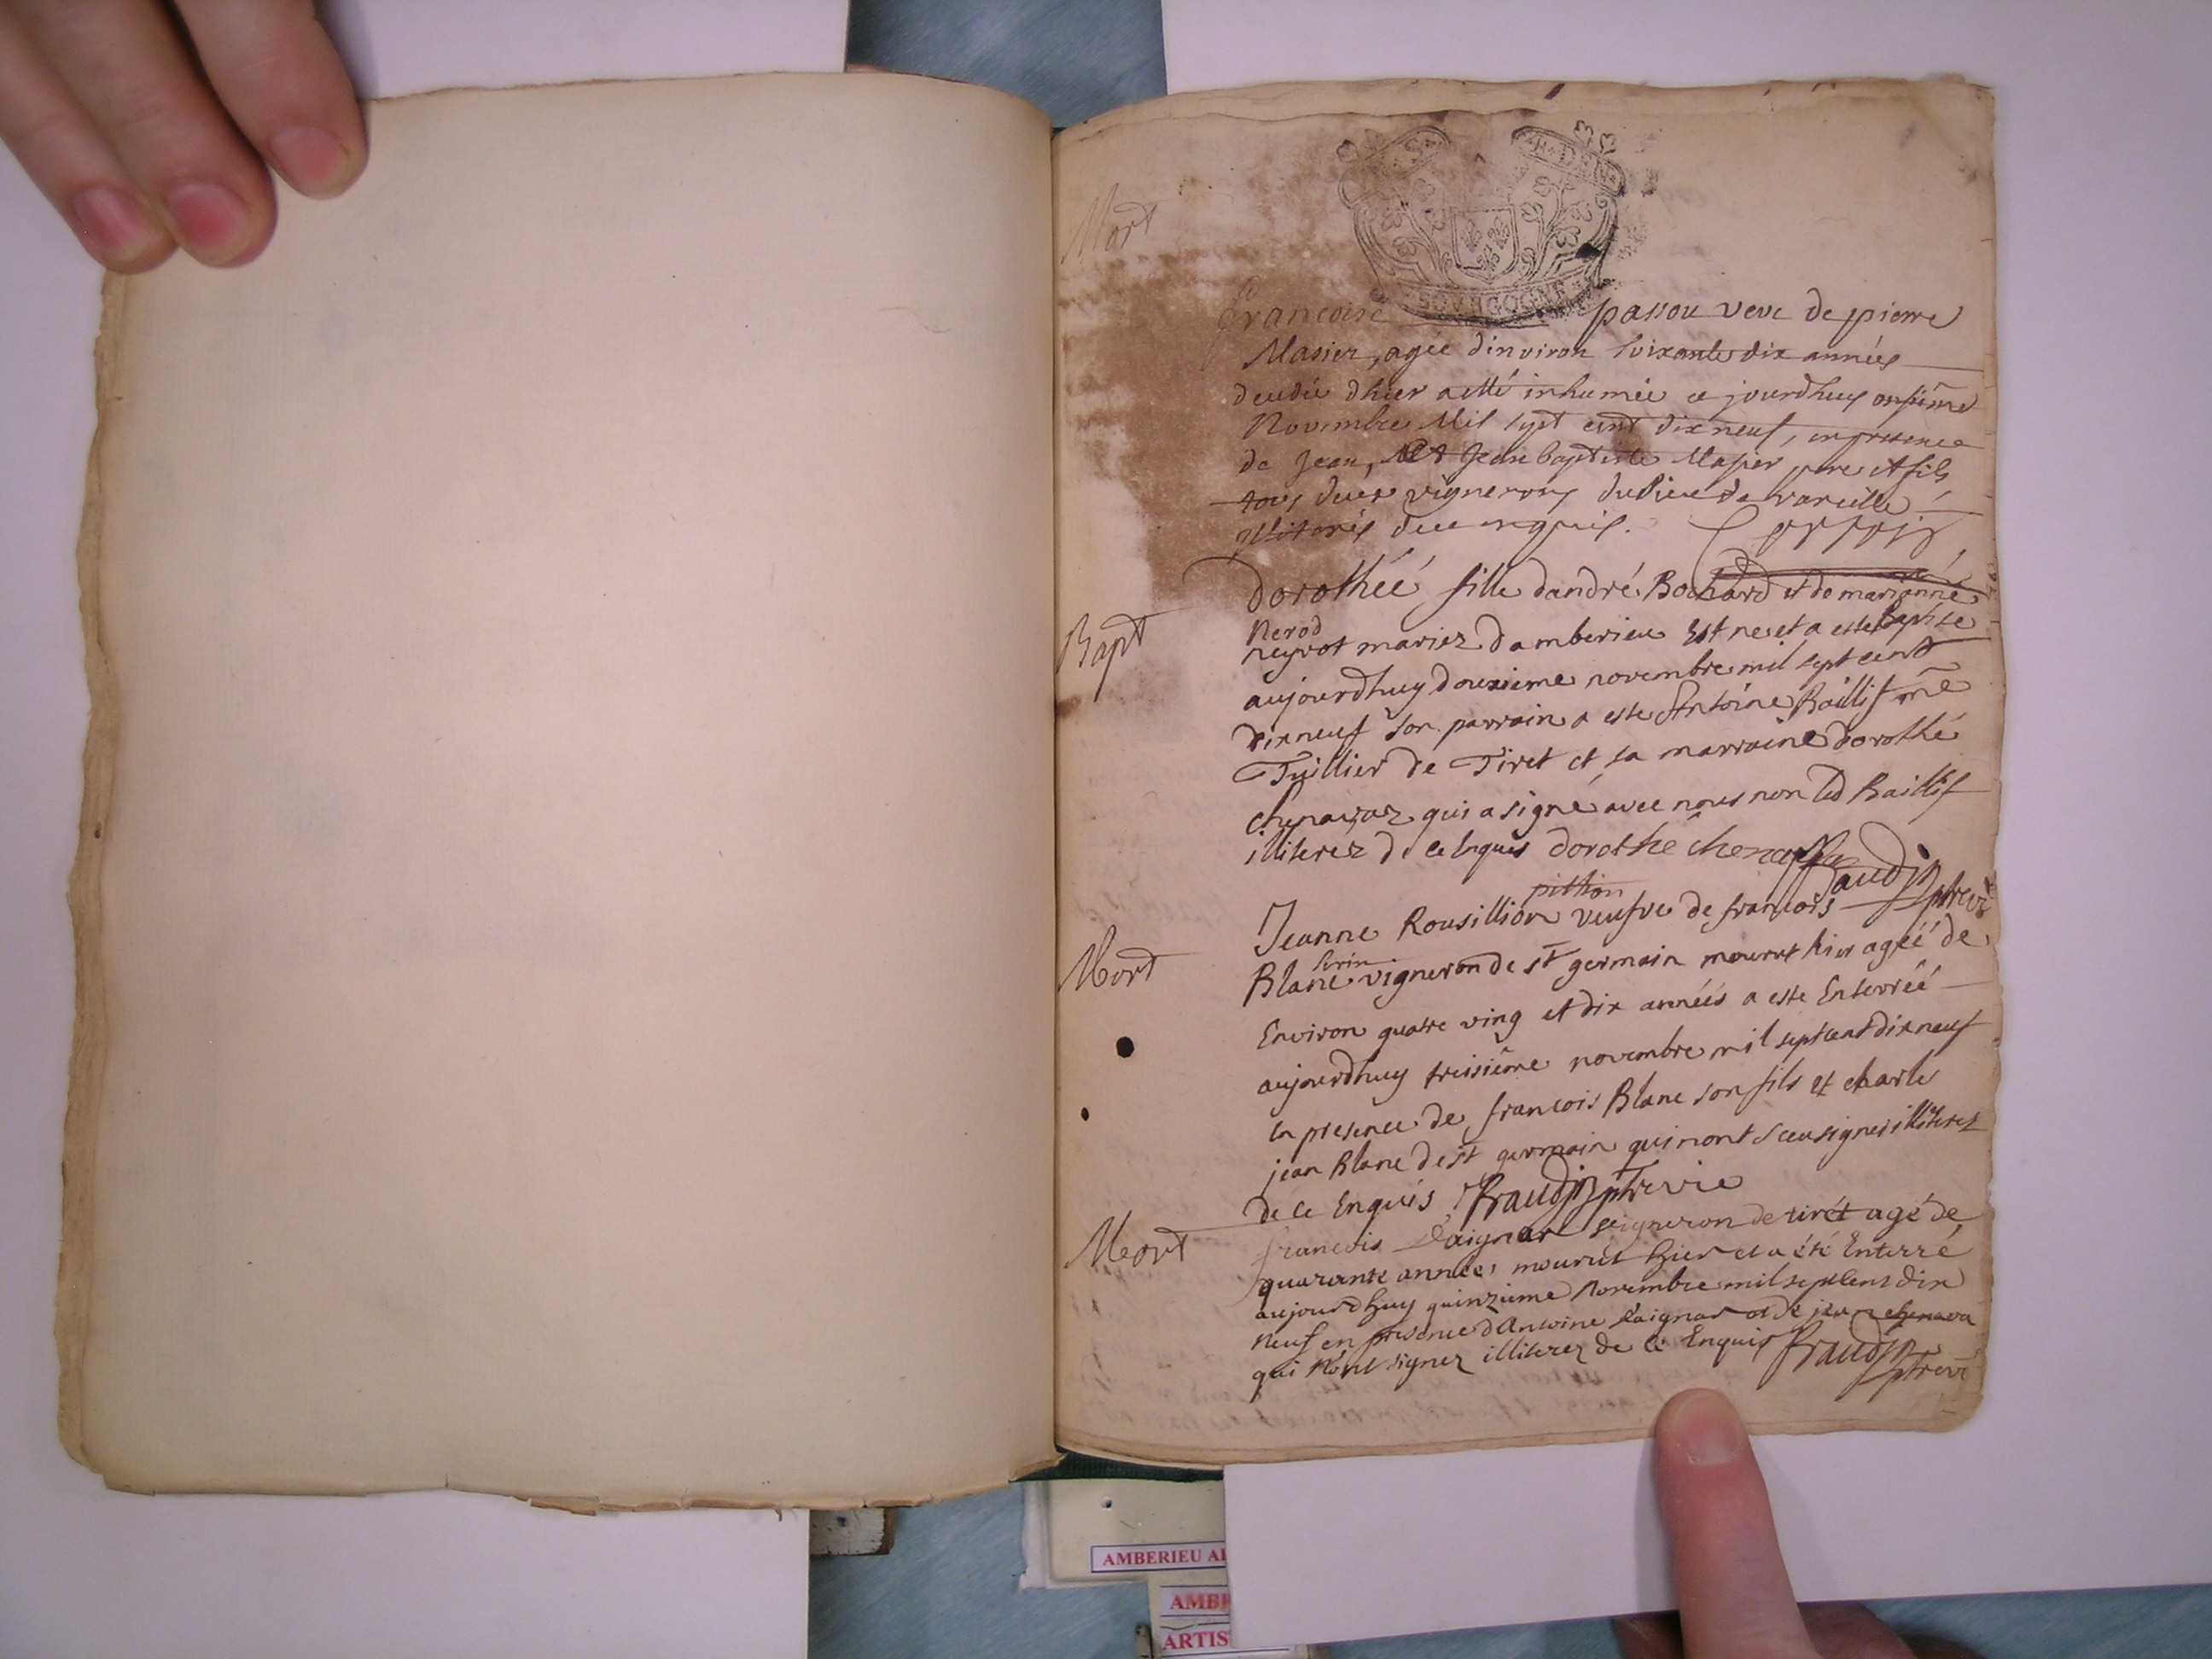 Mort
BOURGOGNE
francoise passou veve de pierre
Masier, agée dinviron soixante dix années
deudée dhier a etté inhumée ce jourdhuy onsiême
Novembre Mil sept cent dix neuf, en presence
de Jean, Et Jean baptiste Masier pere et fils
tous deux vignerons du lieu de vareille
illiterés de ce enquis.
Bapt
Dorothéé fille dandré Bochard et de marianne
Nerod
neyrot mariez damberieu Est ne et a esté baptise
aujourdhuy douxieme novembre mil sept cent
dixneuf son parrain a este Antoine Baillif me
Tuillier de Tiret et sa marraine dorothé
chenavaz qui a signé avec nous non led Baillif
illiterez de ce Enquis dorothé chenava
fraudin ptre vi
Mort
pithion
Jeanne Rousillion veufve de francois
serin
Blanc vigneron de st germain mourut hier agéé de
Environ quatre ving et dix annéés a este Enterréé
aujourdhuy treisiême novembre mil sept cent dix neuf
En presence de francois Blanc son fils et charle
jean Blanc de st germain qui nont sceu signer illiterez
de ce Enquis fraudin ptre vie
Mort
francois Daignar vigneron de tirét agé de
quarante années mourut hier et a été Enterré
aujourdhuy quinzieme Novembre mil sept cens dix
Neuf en presence dAntoine daignar et de jean chenava
qui N'ont signez illiterez de ce Enquis fraudin
ptre vi
AMBERIEU
ARTIS